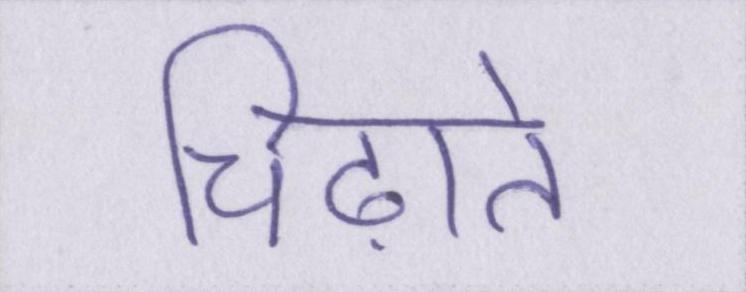 चिढ़ाते